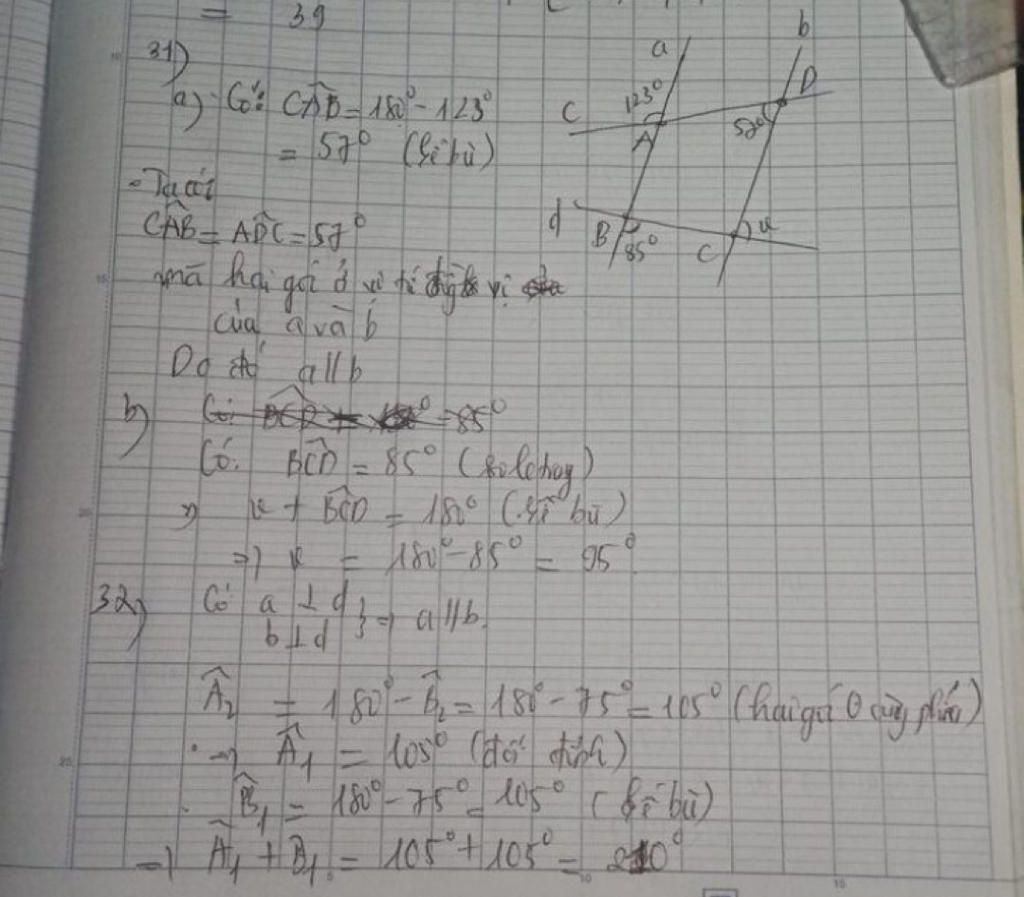 = 39
31)
a) Có: CÂB = 180° - 123°
= 57° (kề bù)
- Ta có:
CÂB = ADC = 57°
mà hai góc ở vị trí đồng vị
của a và b
Do đó a // b
b) Có: BCD = = 85°
Có: BCD = 85° (so le trong)
=> x + BCD = 180° (kề bù)
=> x = 180° - 85° = 95°
32) Có a ⊥ d
b ⊥ d } => a // b.
Â2 = 180° - B2 = 180° - 75° = 105° (hai góc cùng phía)
=> Â1 = 105° (đối đỉnh)
B1 = 180° - 75° = 105° (kề bù)
=> Â1 + B1 = 105° + 105° = 210°
a
b
c
123°
D
52°
A
d
B
85°
C
x